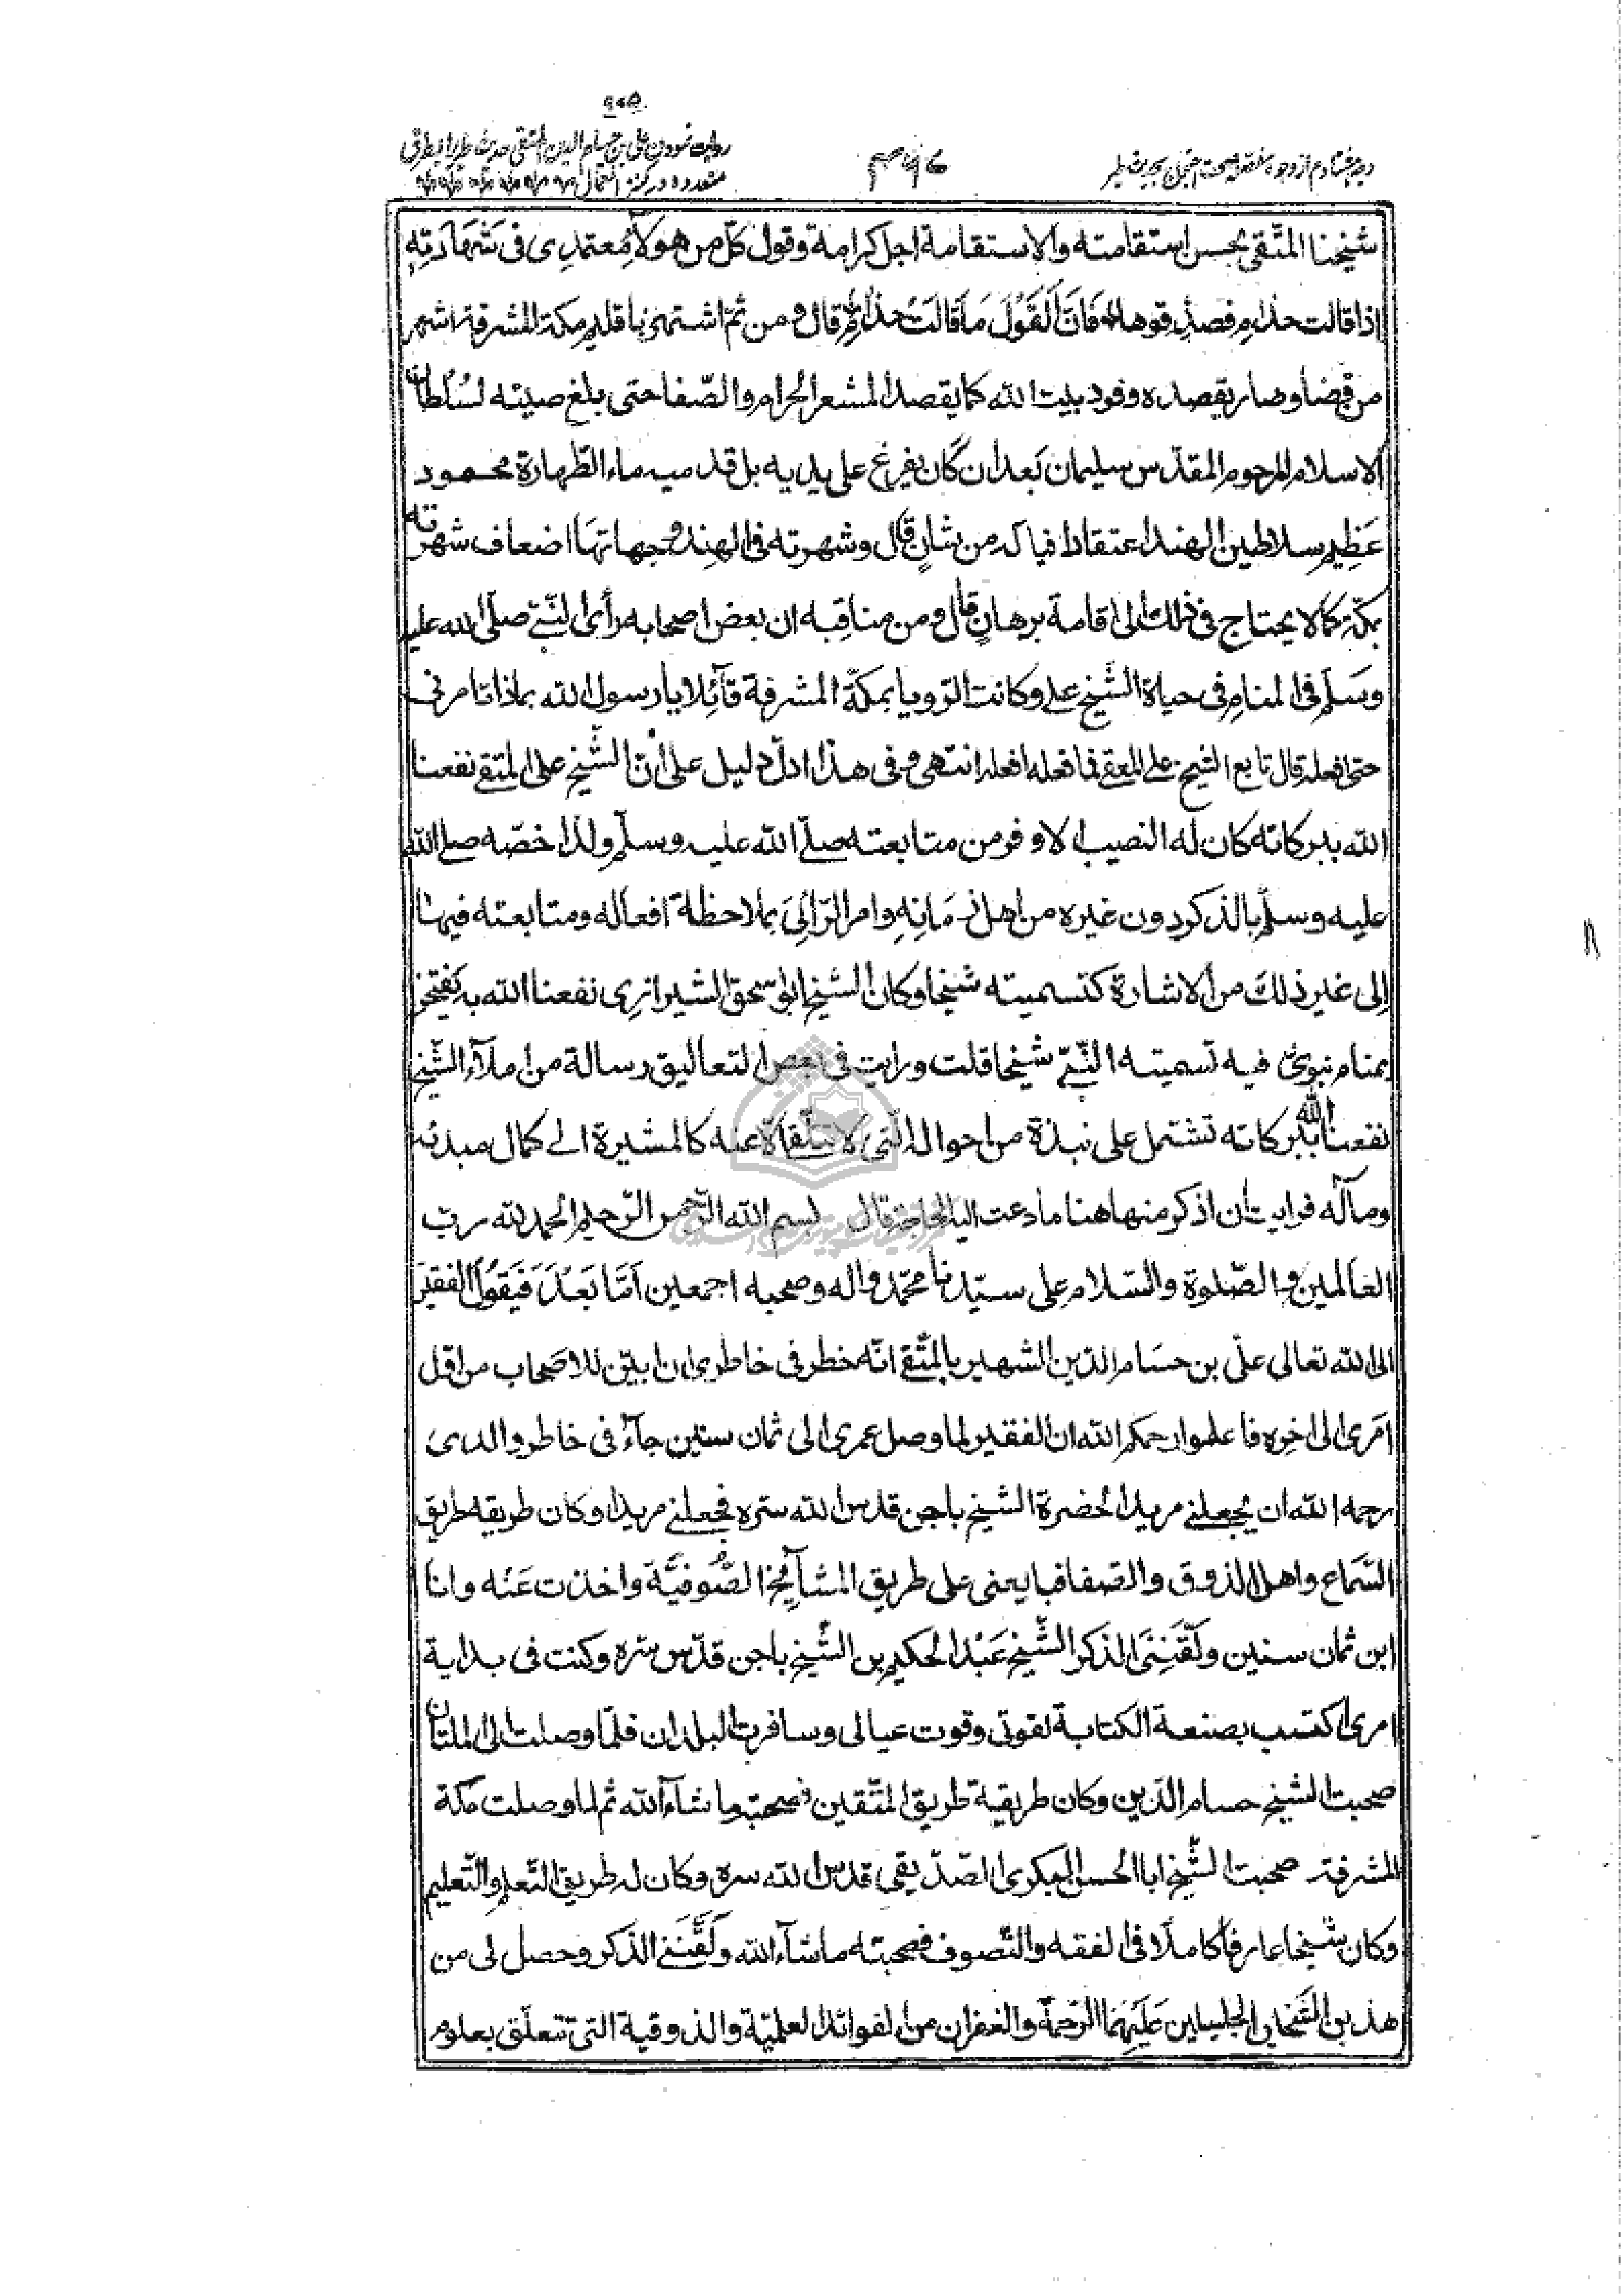 ۹۷۵
روایت نمودن علی بن حسام الدین المتقی حدیث طیر را بطرق
متعدده در کنز العمال
۴۹۷
شيخنا المتّقى بحسن استقامته والاستقامة اجل كرامة وقول كلّ من هولاءِ مُعتمدى فى شهادته
اذا قالت حذام فصدّقوها فَانَّ اَلقَولَ مَا قالَت حذام قال ومن ثمّ اشتهر باقليم مكة المشرفة اشهر
من قفضا وصار يقصده وفود بيت الله كما يقصد المشعر الحرام والصّفا حتى بلغ صيته لسُلطان
الاسلام المرحوم المقدّس سليمان بَعد ان كان يفرغ على يديه بل قدميه ماء الطّهارة محمود
عَظِيم سلاطين الهند اعتقادا فيا له من شانٍ قال وشهرته فى الهند وجهاتها اضعاف شهرته
بمكّة كما لا يحتاج فى ذلك الى اقامة برهانٍ قال ومن مناقبه ان بعض اصحابه رأى النّبىّ صلّى الله عليه
وسَلّم فى المنام فى حياة الشّيخ على وكانت الرّويا بمكّة المشرفة قآئلا يا رسول الله بماذا تامرنى
حتى افعله قال تابع الشيخ على المتقى فما فعله افعله انتهى وفى هذا ادلّ دليل على أنّ الشّيخ على المتقى نفعنا
الله ببركاته كان له النصيب الاوفر من متابعته صلّى الله عليه وسلّم ولذا خصّه صلى الله
عليه وسلّم بالذكر دون غيره من اهل زمَانِهِ وامر الرّائِىَ بملاحظة افعاله ومتابعته فيها
إلى غير ذلك من الاشارة كتسميته شيخا وكان الشيخ ابو سحق الشيرازى نفعنا الله به يفتخر
بمنام نبوىّ فيه تسميته النّبىّ شيخا قلت ورايت فى بعض التعاليق رسالة من املآء الشّيخ
نفعنا الله ببركاته تشتمل على نبذة من احواله الّتى المتلقاة عنه كالمشيرة الى كمال مبدئه
ومآله فرايت ان اذكر منها هنا ما دعت اليه الحاجة قال بسم الله الرّحمن الرّحيم الحمد لله ربّ
العالمين والصّلوة والسّلام على سيّدنا محمّد واله وصحبه اجمعين امّا بَعدُ فَيقول الفقير
الى الله تعالى علىّ بن حسَام الدّين الشهير بالمتّقى انّه خطر فى خاطرى ان ابيّن للاصحاب من اوّل
اَمرى الى اخِره فاعلموا رحمكم الله ان الفقير لما وصل عمرى الى ثمان سنين جآء فى خاطر والدى
رحمه الله ان يجعلنى مريدا لحضرة الشيخ باجن قدس الله سرّه فجعلنى مريدا وكان طريقه طريق
السَّماع واهل الذوق والصفا فبايعنى على طريق المشآئخ الصُّوفيّة واخذت عَنه وانا
ابن ثمان سنين ولقّنَنِى الذكر الشّيخ عَبْد الحكيم بن الشّيخ باجن قدّس سّره وكنت فى بداية
امرى اكتسب بصنعة الكتابة لقوتى وقوت عيالى وسافرت البلدان فلمّا وصلت الى الملتان
صحبت الشيخ حسام الدّين وكان طريقه طريق المتّقين فصحبته ما شاء الله ثم لما وصلت مكة
المشرفة صحبت الشّيخ ابا الحسن البكرى الصّدّيقى قدس الله سره وكان له طريق التّعلم والتّعليم
وكان شيخا عارفا كاملا فى الفقه والتّصوف فصحبته ما شآء الله ولَقّننى الذكر وحصل لى من
هذين الشَّيخين الجليلين عَلَيهِمَا الرّحمة والغفران من الفوائد العلميّة والذوقية التى تتعلّق بعلوم